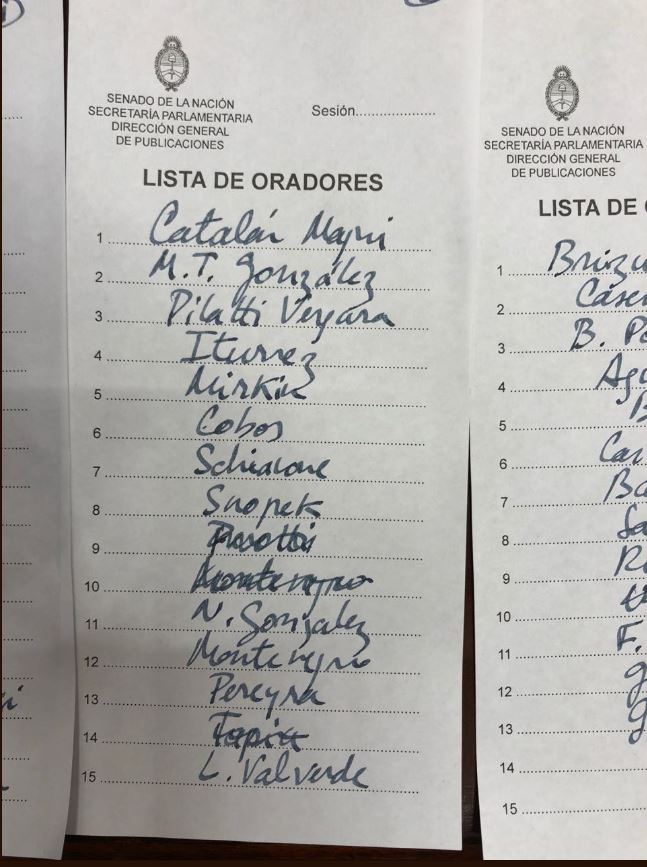 SENADO DE LA NACIÓN
SECRETARÍA PARLAMENTARIA
DIRECCIÓN GENERAL
DE PUBLICACIONES
Sesión....................
LISTA DE ORADORES
1 Catalán Magni
2 M.T. González
3 Pilatti Vergara
4 Iturrez
5 Mirkin
6 Cobos
7 Schiavone
8 Snopek
9 Perotti
10 Montenegro
11 N. Gonzalez
12 Montenegro
13 Pereyra
14 Tapia
15 L. Valverde
SENADO DE LA NACIÓN
SECRETARÍA PARLAMENTARIA
DIRECCIÓN GENERAL
DE PUBLICACIONES
LISTA DE
1 Brizu
2 Case
3 B.
4 Agu
5
6 Cas
7 Ba
8
9
10
11 F.
12
13
14
15